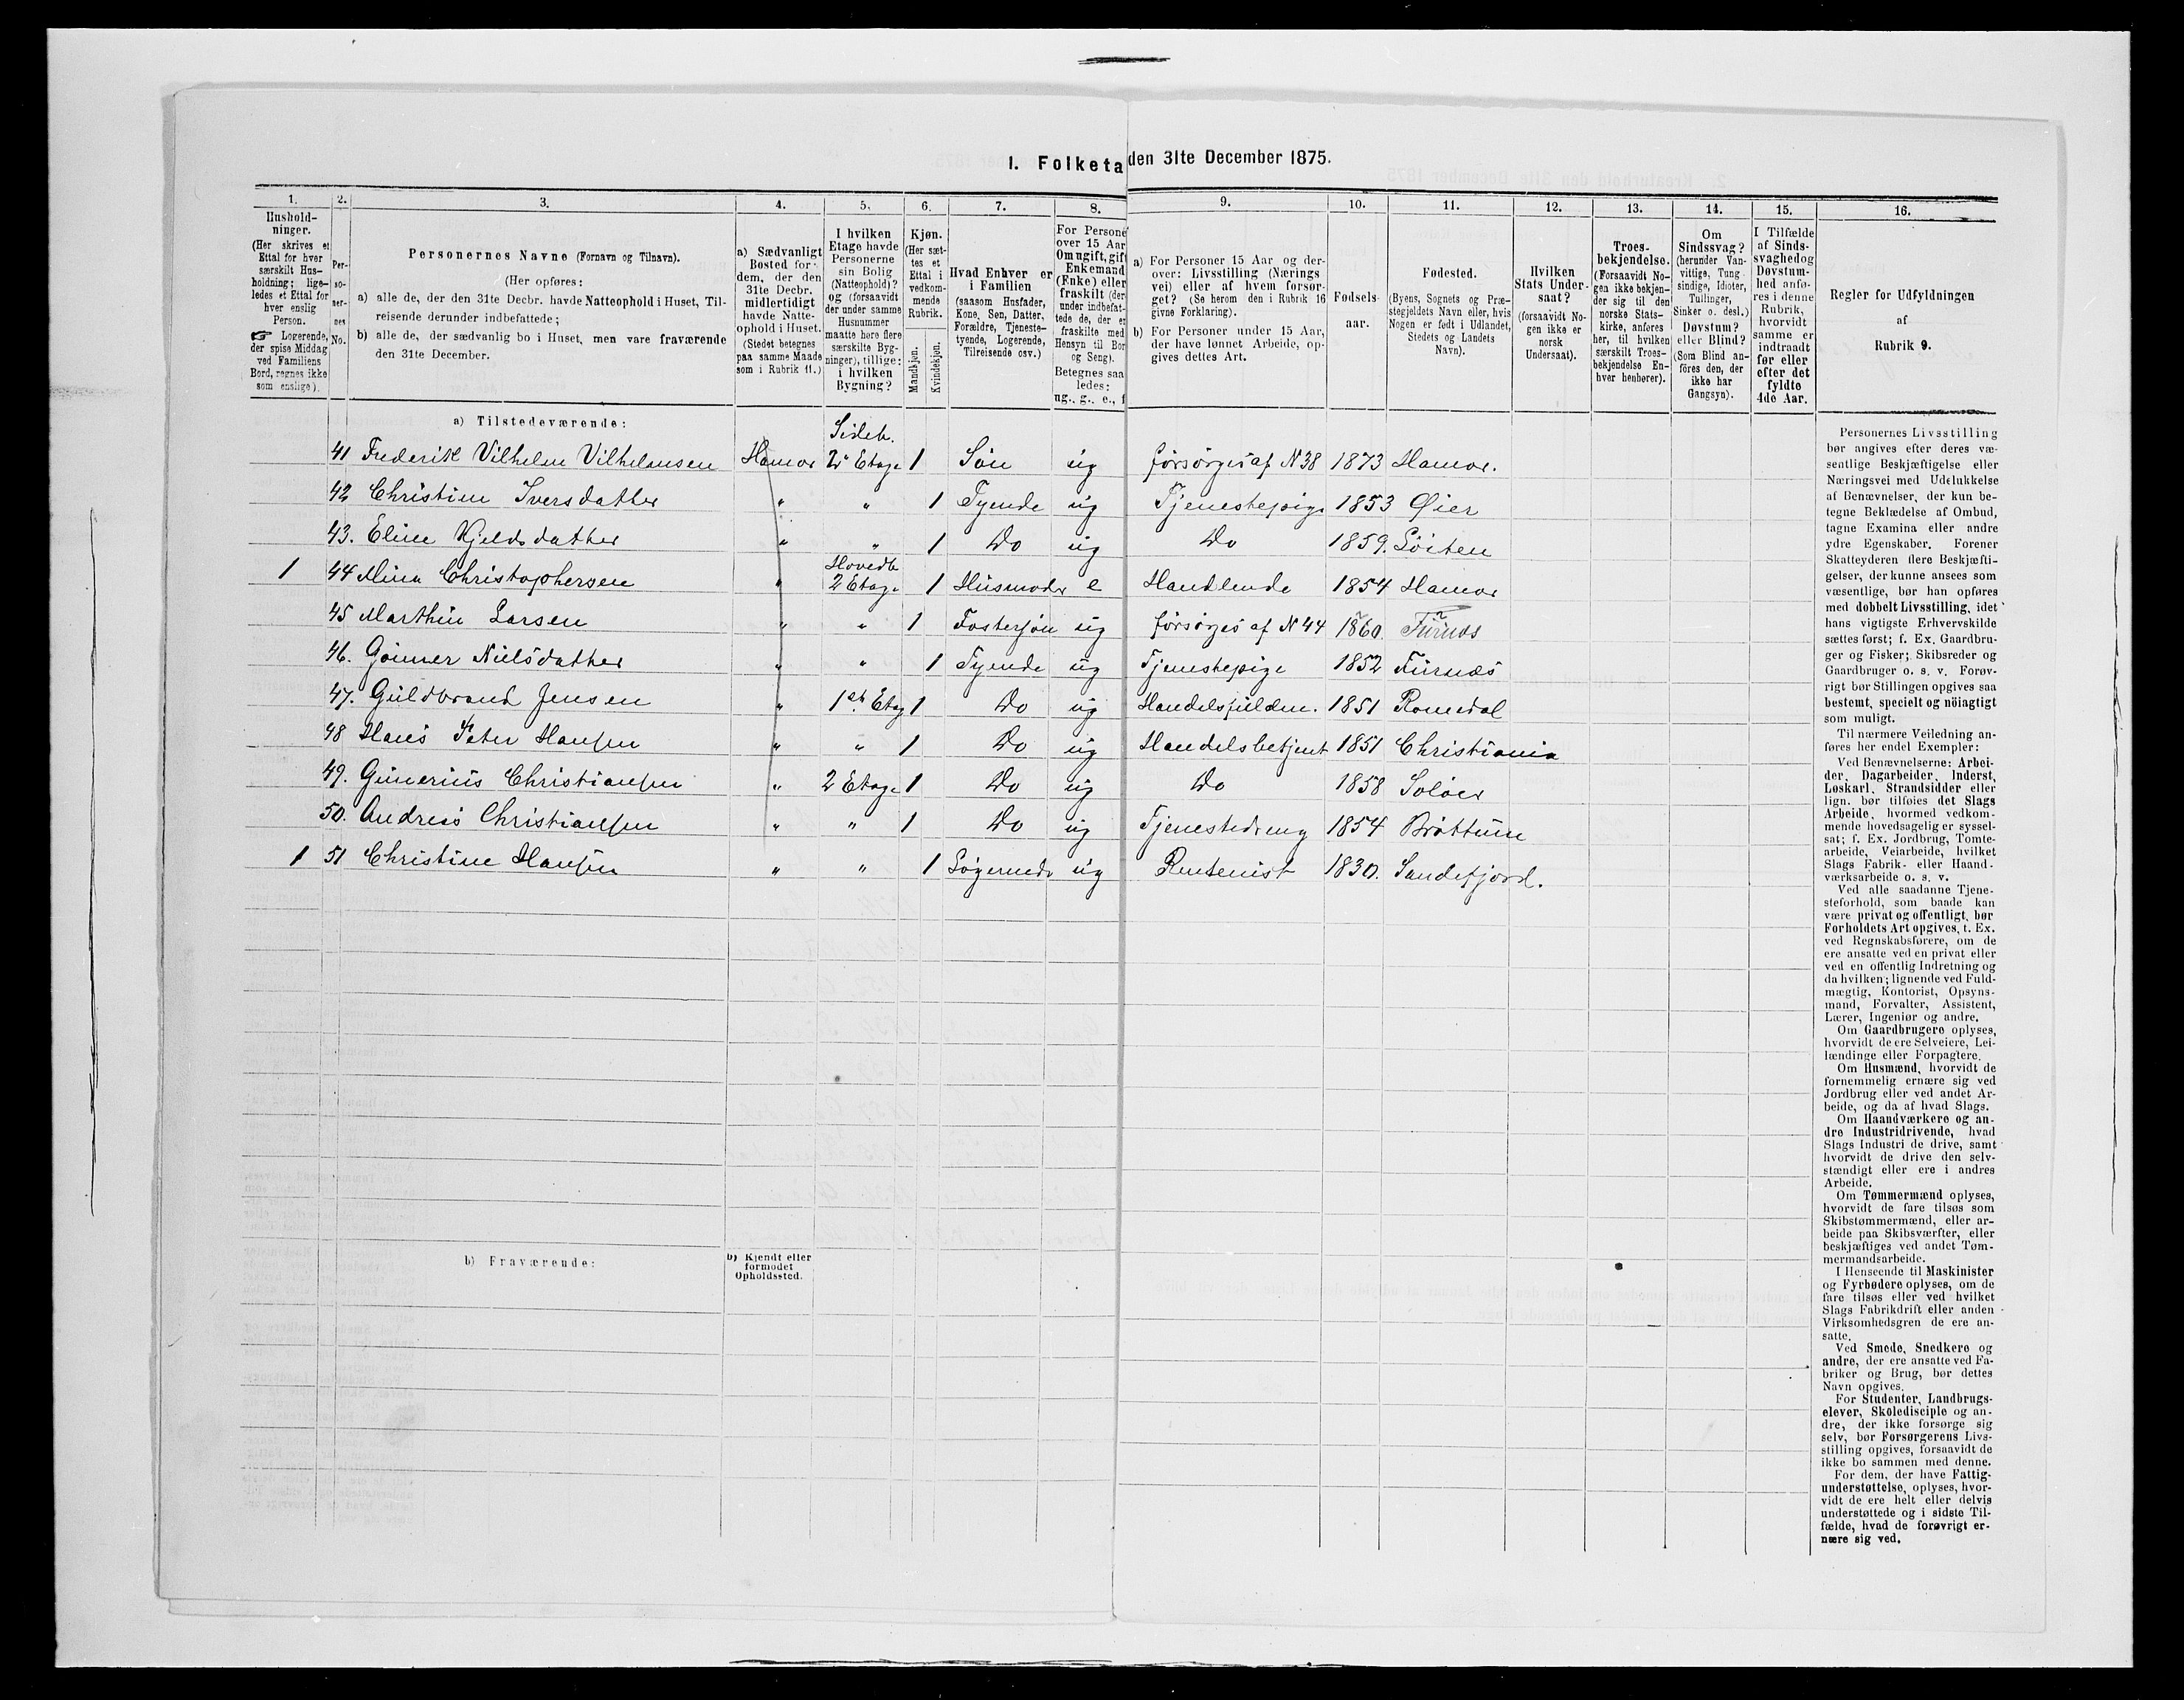 I. Folketa
den 31te December 1875.
1.
2.
3.
4.
5.
6.
7.
8.
9.
10.
11.
12.
13.
14.
15.
16.
Hushold-
ninger.
(Her skrives et
Ettal for hver
særskilt Hus-
holdning; lige-
ledes et Ettal for
hver enslig
Person.
☞ Logerende,
der spise Middag
ved Familiens
Bord, regnes ikke
som enslige).
Per-
so-
ner-
nes
No.
Personernes Navne (Fornavn og Tilnavn).
(Her opføres:
a) alle de, der den 31te Decbr. havde Natteophold i Huset, Til-
reisende derunder indbefattede;
b) alle de, der sædvanlig bo i Huset, men vare fraværende
den 31te December.
a) Sædvanligt
Bosted for
dem, der den
31te Decbr.
midlertidigt
havde Natte-
ophold i Huset.
(Stedet betegnes
paa samme Maade
som i Rubrik 11.)
I hvilken
Etage havde
Personerne
sin Bolig
(Natteophold)?
og (forsaavidt
der under samme
Husnummer
maatte høre flere
særskilte Byg-
ninger), tillige:
i hvilken
Bygning?
Kjøn.
(Her sæt-
tes et
Ettal i
vedkom-
mende
Rubrik.
Mandkjøn.
Kvindekjøn.
Hvad Enhver er
i Familien
(saasom Husfader,
Kone, Søn, Datter,
Forældre, Tjeneste-
tyende, Logerende,
Tilreisende osv.)
For Persone
over 15 Aar
Om ugift, gift
Enkemand
(Enke) eller
fraskilt (der
under indbefat-
tede de, der er
fraskilte med
Hensyn til Bor
og Seng).
Betegnes saa
ledes:
ug., g., e., f
a) For Personer 15 Aar og der-
over: Livsstilling (Nærings
vei) eller af hvem forsør-
get? (Se herom den i Rubrik 16
givne Forklaring).
b) For Personer under 15 Aar,
der have lønnet Arbeide, op-
gives dettes Art.
Fødsels-
aar.
Fødested.
(Byens, Sognets og Præ-
stegjeldets Navn eller, hvis
Nogen er født i Udlandet,
Stedets og Landets
Navn).
Hvilken
Stats Under-
saat?
(forsaavidt No-
gen ikke er
norsk
Undersaat).
Troes-
bekjendelse.
(Forsaavidt No-
gen ikke bekjen-
der sig til den
norske Stats-
kirke, anføres
her, til hvilken
særskilt Troes-
bekjendelse En-
hver henhører).
Om
Sindssvag?
(herunder Van-
vittige, Tung
sindige, Idioter,
Tullinger,
Sinker o. desl.)
Døvstum?
eller Blind?
(Som Blind an-
føres den, der
ikke har
Gangsyn).
I Tilfælde
af Sinds-
svaghed og
Døvstum-
hed anfø-
res i denne
Rubrik,
hvorvidt
samme er
indtraadt
før eller
efter det
fyldte
4de Aar.
Regler for Udfyldningen
af
Rubrik 9.
a) Tilstedeværende:
Sideb.
41 Frederik Vilhelm Vilhelmsen Hamar 2den Etage 1 Søn ug forsørges af N 38 1873 Hamar.
42 Christine Iversdatter " " 1 Tyende ug Tjenestepige 1853 Øier
43. Eline Kjeldsdatter " " 1 Do ug Do 1859. Löiten
Hovedb
1 44 Mina Christophersen " 2 Etage 1 Husmoder e Handlende 1854 Hamar
45 Marthin Larsen " " 1 Fostersøn ug forsørges af N 44 1860 Furnæs
46. Gunner Nielsdatter " " 1 Tyende ug Tjenestepige 1852 Furnæs
47. Guldbrand Jensen " 1st Etag 1 Do ug Handelsfuldm. 1851 Romedal
48 Hans Peter Hansen " " 1 Do ug Handelsbetjent 1851 Christiania
49. Gunerius Christiansen " 2 Etage 1 Do ug Do 1858 Soløer
50. Andreas Christiansen " " 1 Do ug Tjenestedreng 1854 Brøttum
1 51 Christine Hansen " " 1 Logerende ug Rentenist 1830. Sandefjord.
b) Fraværende:
b) Kjendt eller
formodet
Opholdssted.
Personernes Livsstilling
bør angives efter deres væ-
sentlige Beskjæftigelse eller
Næringsvei med Udelukkelse
af Benævnelser, der kun be-
tegne Beklædelse af Ombud,
tagne Examina eller andre
ydre Egenskaber. Forener
Skatteyderen flere Beskjæfti-
gelser, der kunne ansees som
væsentlige, bør han opføres
med dobbelt Livsstilling, idet
hans vigtigste Erhvervskilde
sættes først; f. Ex. Gaardbru-
ger og Fisker; Skibsreder og
Gaardbruger o. s. v. Forøv-
rigt bør Stillingen opgives saa
bestemt, specielt og nöiagtigt
som muligt.
Til nærmere Veiledning an-
føres her endel Exempler:
Ved Benævnelserne: Arbei-
der, Dagarbeider, Inderst,
Løskarl, Strandsidder eller
lign. bør tilføies det Slags
Arbeide, hvormed vedkom-
mende hovedsagelig er syssel-
sat; f. Ex. Jordbrug, Tomte-
arbeide, Veiarbeide, hvilket
Slags Fabrik- eller Haand-
værksarbeide o. s. v.
Ved alle saadanne Tjene-
steforhold, som baade kan
være privat og offentligt, bør
Forholdets Art opgives, t. Ex.
ved Regnskabsførere, om de
ere ansatte ved en privat eller
ved en offentlig Indretning og
da hvilken; lignende ved Fuld-
mægtig, Kontorist, Opsyns-
mand, Forvalter, Assistent,
Lærer, Ingeniør og andre.
Om Gaardbrugere oplyses,
hvorvidt de ere Selveiere, Lei-
lændinge eller Forpagtere.
Om Husmænd, hvorvidt de
fornemmelig ernære sig ved
Jordbrug eller ved andet Ar-
beide, og da af hvad Slags.
Om Haandværkere og an-
dre Industridrivende, hvad
Slags Industri de drive, samt
hvorvidt de drive den selv-
stændigt eller ere i andres
Arbeide.
Om Tømmermænd oplyses,
hvorvidt de fare tilsøs som
Skibstømmermænd, eller ar-
beide paa Skibsværfter, eller
beskjæftiges ved andet Tøm-
mermandsarbeide.
I Henseende til Maskinister
og Fyrbødere oplyses, om de
fare tilsøs eller ved hvilket
Slags Fabrikdrift eller anden
Virksomhedsgren de ere an-
satte.
Ved Smede, Snedkere og
andre, der ere ansatte ved Fa-
briker og Brug, bør dettes
Navn opgives.
For Studenter, Landbrugs-
elever, Skoledisciple og an-
dre, der ikke forsørge sig
selv, bør Forsørgerens Livs-
stilling opgives, forsaavidt de
ikke bo sammen med denne.
For dem, der have Fattig-
understøttelse, oplyses, hvor-
vidt de ere helt eller delvis
understøttede og i sidste Til-
fælde, hvad de forøvrigt er-
nære sig ved.